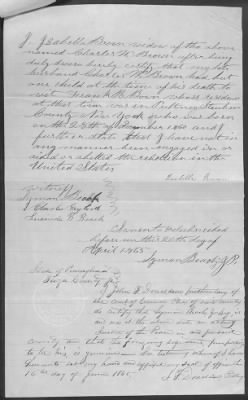 I, Isabella Brown widow of the above
named Charles W Brown after being
duly sworn hereby certify that my late
husband Charles W Brown had but
one child at the time of his death to
wit Frank B Brown whose residence
at this time was in
County New York who was born
on the 28th of December 1860 and I
further state that I have not in
any manner been engaged in or
aided or abetted the rebellion in the
United States
Isabella Brown
witness
Lyman Beach
Charles
Lucinda B Beach
Sworn to & subscribed
before me this 20th day of
April 1865
Lyman Beach J P
State of Pennsylvania
Tioga County SS
I John F Donaldson prothonotary of
the court of Common Pleas of said county do
do certify that Lyman Beach Esq is
and was at the above date an acting
Justice of the Peace in and for said
county and that the foregoing signature purporting
to be his is genuine. In testimony whereof I have
hereunto set my hand and affixed my seal of office this
16th day of June 1865
J F Donaldson Prothy